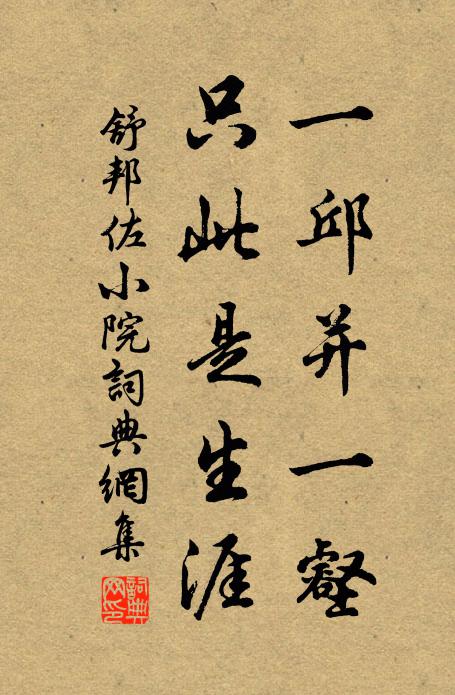 一邱并一壑
只此是生涯
舒邦佐小院詞典網集
詞典网印